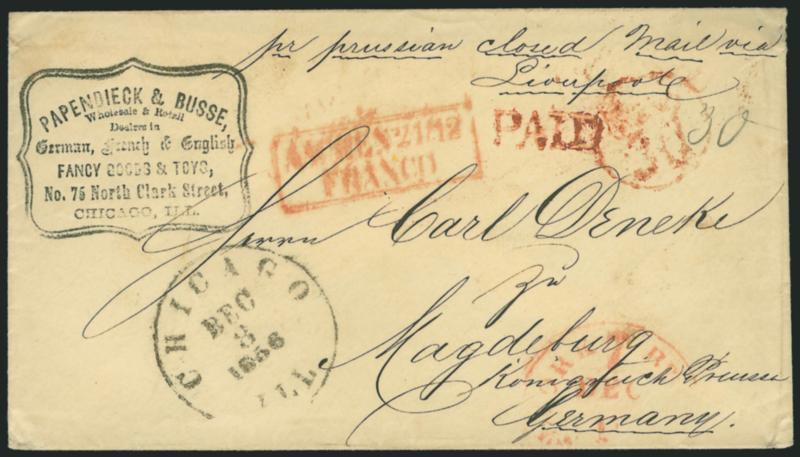 pr prussian closed Mail via
Liverpool
PAPENDIECK & BUSSE,
Wholesale & Retail
Dealers in
German, French & English
FANCY GOODS & TOYS,
No. 75 North Clark Street,
CHICAGO, ILL.
AACHEN 24 12
FRANCO
PAID
30
Herrn Carl Deneke
zu
Magdeburg
Königreich Preussen
Germany.
CHICAGO ILL.
DEC
3
1856
DEC